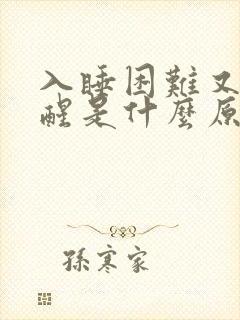 入睡困難又
醒是什麼原
孫寒家